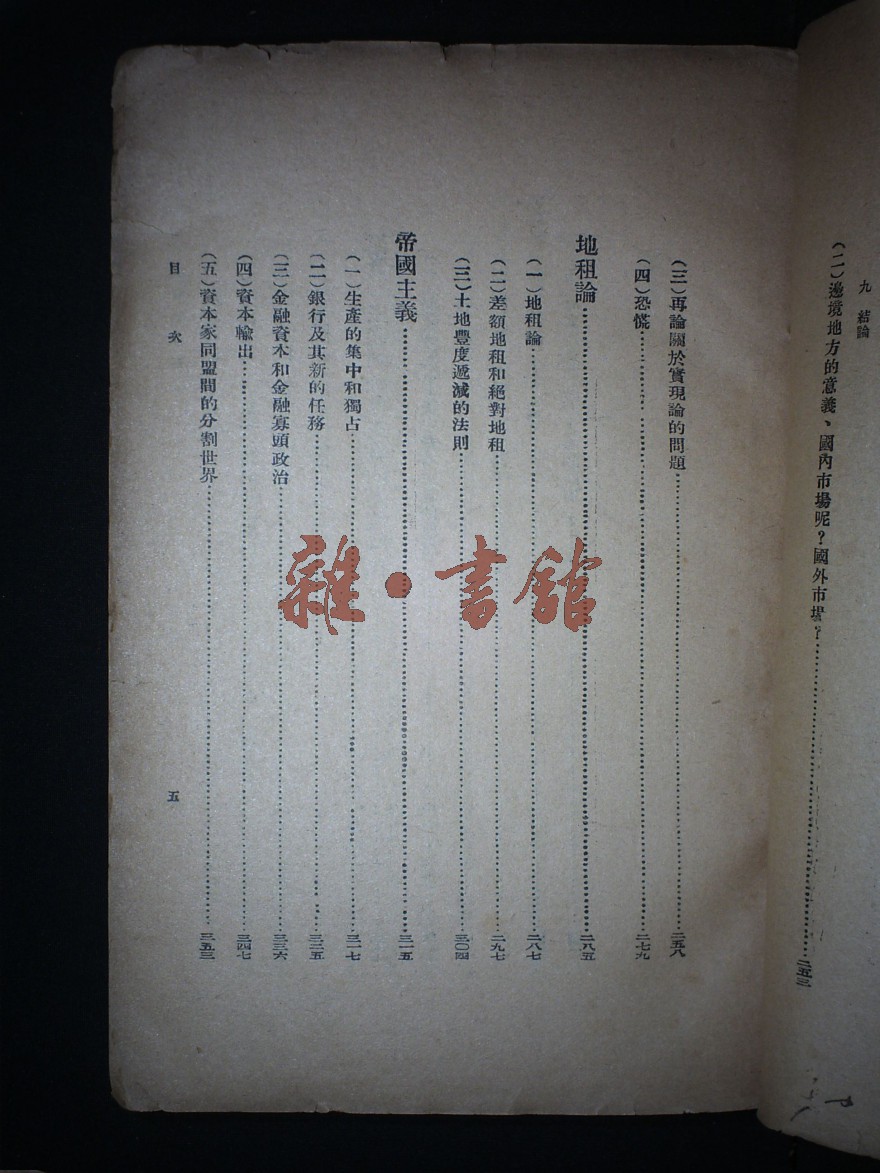 九　結論
(二)邊境地方的意義、國內市場呢？國外市場？……二五三
(三)再論關於實現論的問題……二五八
(四)恐慌……二七九
地租論……二八五
(一)地租論……二八七
(二)差額地租和絕對地租……二九七
(三)土地豐度遞減的法則……三〇四
帝國主義……三一五
(一)生產的集中和獨占……三一七
(二)銀行及其新的任務……三二五
(三)金融資本和金融寡頭政治……三三六
(四)資本輸出……三四七
(五)資本家同盟間的分割世界……三五三
目次
五
雜·書館